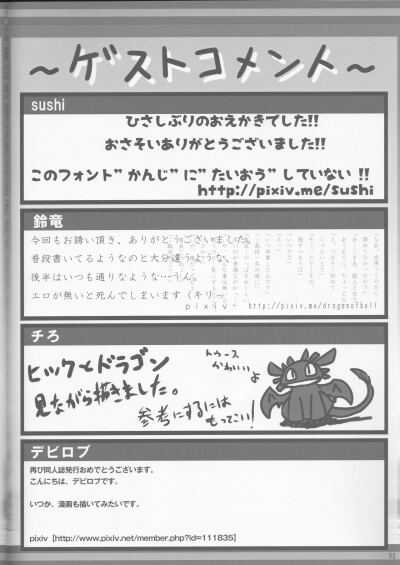 ～ゲストコメント～
sushi
ひさしぶりのおえかきでした!!
おさそいありがとうございました!!
このフォント”かんじ”に”たいおう”していない !!
http://pixiv.me/sushi
鈴竜
今回もお誘い頂き、ありがとうございました。
普段書いてるようなのと大分違うような、
後半はいつも通りなような…うん。
エロが無いと死んでしまいます（キリッ
pixiv http://pixiv.me/dragonofbell
チろ
ヒックとドラゴン
見ながら描きました。
参考にするには
もってこい!
トゥース
かわいい
よ
デビロブ
再び同人誌発行おめでとうございます。
こんにちは、デビロブです。
いつか、漫画も描いてみたいです。
pixiv【http://www.pixiv.net/member.php?id=111835】
52